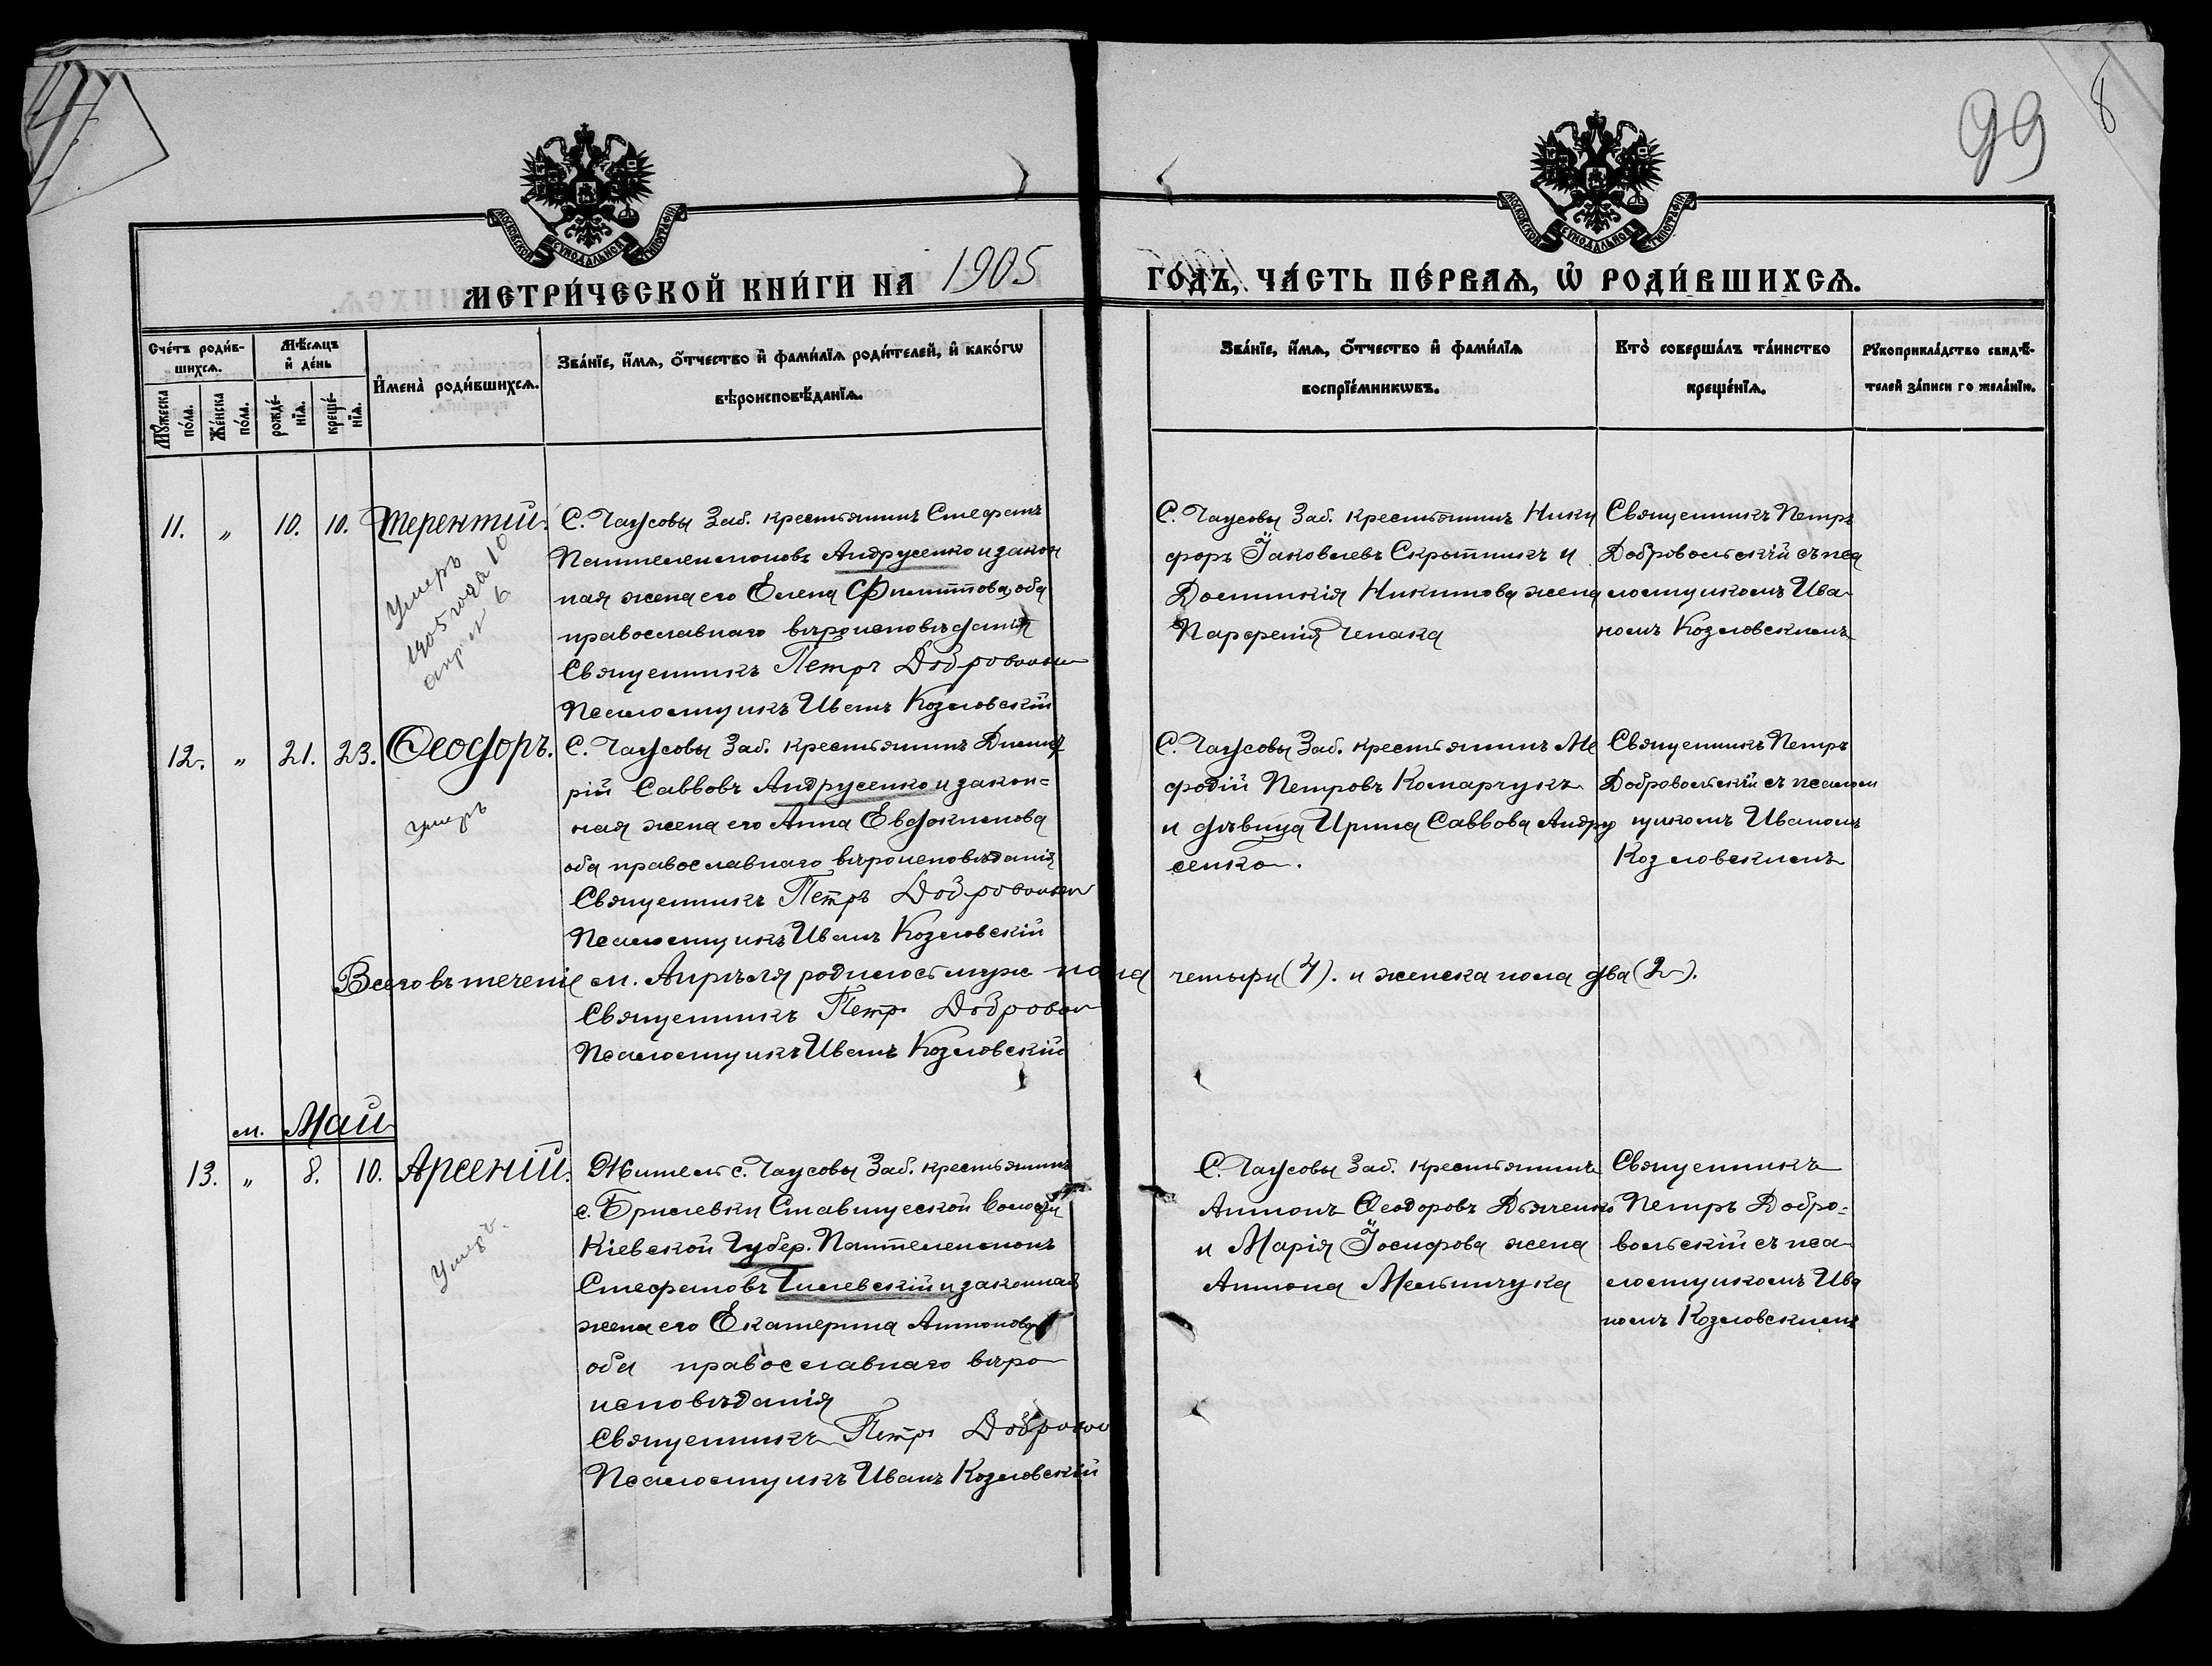 99
8
МОСКОВСКОЙ СѴНОДАЛЬНОЙ ТИПОГРАФІИ
МОСКОВСКОЙ СѴНОДАЛЬНОЙ ТИПОГРАФІИ
МЕТРИ́ЧЕСКОЙ КНИ́ГИ НА 1905
ГО́ДЪ, ЧА́СТЬ ПЕ́РВАѦ, Ѡ҆ РОДИ́ВШИХСѦ.
Сче́тъ роди́в-
шихсѧ.
Мѣ́сѧцъ
и҆ де́нь
Мꙋ́жеска
по́ла.
Же́нска
по́ла.
рожде́-
нїѧ.
креще́-
нїѧ.
И҆мена̀ роди́вшихсѧ.
Зва́нїе, и҆́мѧ, ѻ҆́тчество и҆ фами́лїѧ роди́телей, и҆ како́гѡ
вѣроисповѣ́данїѧ.
Зва́нїе, и҆́мѧ, ѻ҆́тчество и҆ фами́лїѧ
воспрїе́мникѡвъ.
Кто̀ соверша́лъ та́инство
креще́нїѧ.
Рꙋкоприкла́дство свидѣ́-
телей за́писи по жела́нїю.
11. „ 10. 10. Терентій.
Умеръ
1905 года 10
апрел 6
С. Чаусовы Заб. крестьянинъ Стефанъ
Пантелеимоновъ Андрусенко и закон
ная жена его Елена Филиппова, оба
православнаго вѣроисповѣданія
Священникъ Петръ Доброволь
Псаломщикъ Иванъ Козловскій
С. Чаусовы Заб. крестьянинъ Ники
форъ Іаковлевъ Скрытникъ и
Домникія Никитова жена
Парфенія Чепака
Священникъ Петръ
Добровольскій съ пса
ломщикомъ Ива
номъ Козловскимъ
12. „ 21. 23. Ѳеодоръ.
умеръ
С. Чаусовы Заб. крестьянинъ Димит
рій Саввовъ Андрусенко и закон=
ная жена его Анна Евдокимова
оба православнаго вѣроисповѣданія
Священникъ Петръ Доброволь
Псаломщикъ Иванъ Козловскій
С. Чаусовы Заб. крестьянинъ Ме
фодій Петровъ Комарчукъ
и дѣвица Ирина Саввова Андру
сенко.
Священникъ Петръ
Добровольскій съ псалом
щикомъ Иваномъ
Козловскимъ
Всего въ теченіе м. Апрѣля родилось муж пола четыри (4). и женска пола два (2).
Священникъ Петр Доброво
Псаломщикъ Иванъ Козловскій
м. Май
13. „ 8. 10. Арсеній.
Умеръ.
Житель с. Чаусовы Заб. крестьянинъ
с. Брилевки Ставищеской волости
Кіевской Губер. Пантелеимонъ
Стефановъ Тилевскій и законная
жена его Екатерина Антонова
оба православнаго вѣро
исповѣданія
Священникъ Петр Доброво
Псаломщикъ Иванъ Козловскій
С. Чаусовы Заб. крестьянинъ
Антонъ Ѳеодоровъ Дьяченко
и Марія Іосифова жена
Антона Мельничука
Священникъ
Петръ Добро=
вольскій съ пса
ломщикомъ Ива
номъ Козловскимъ